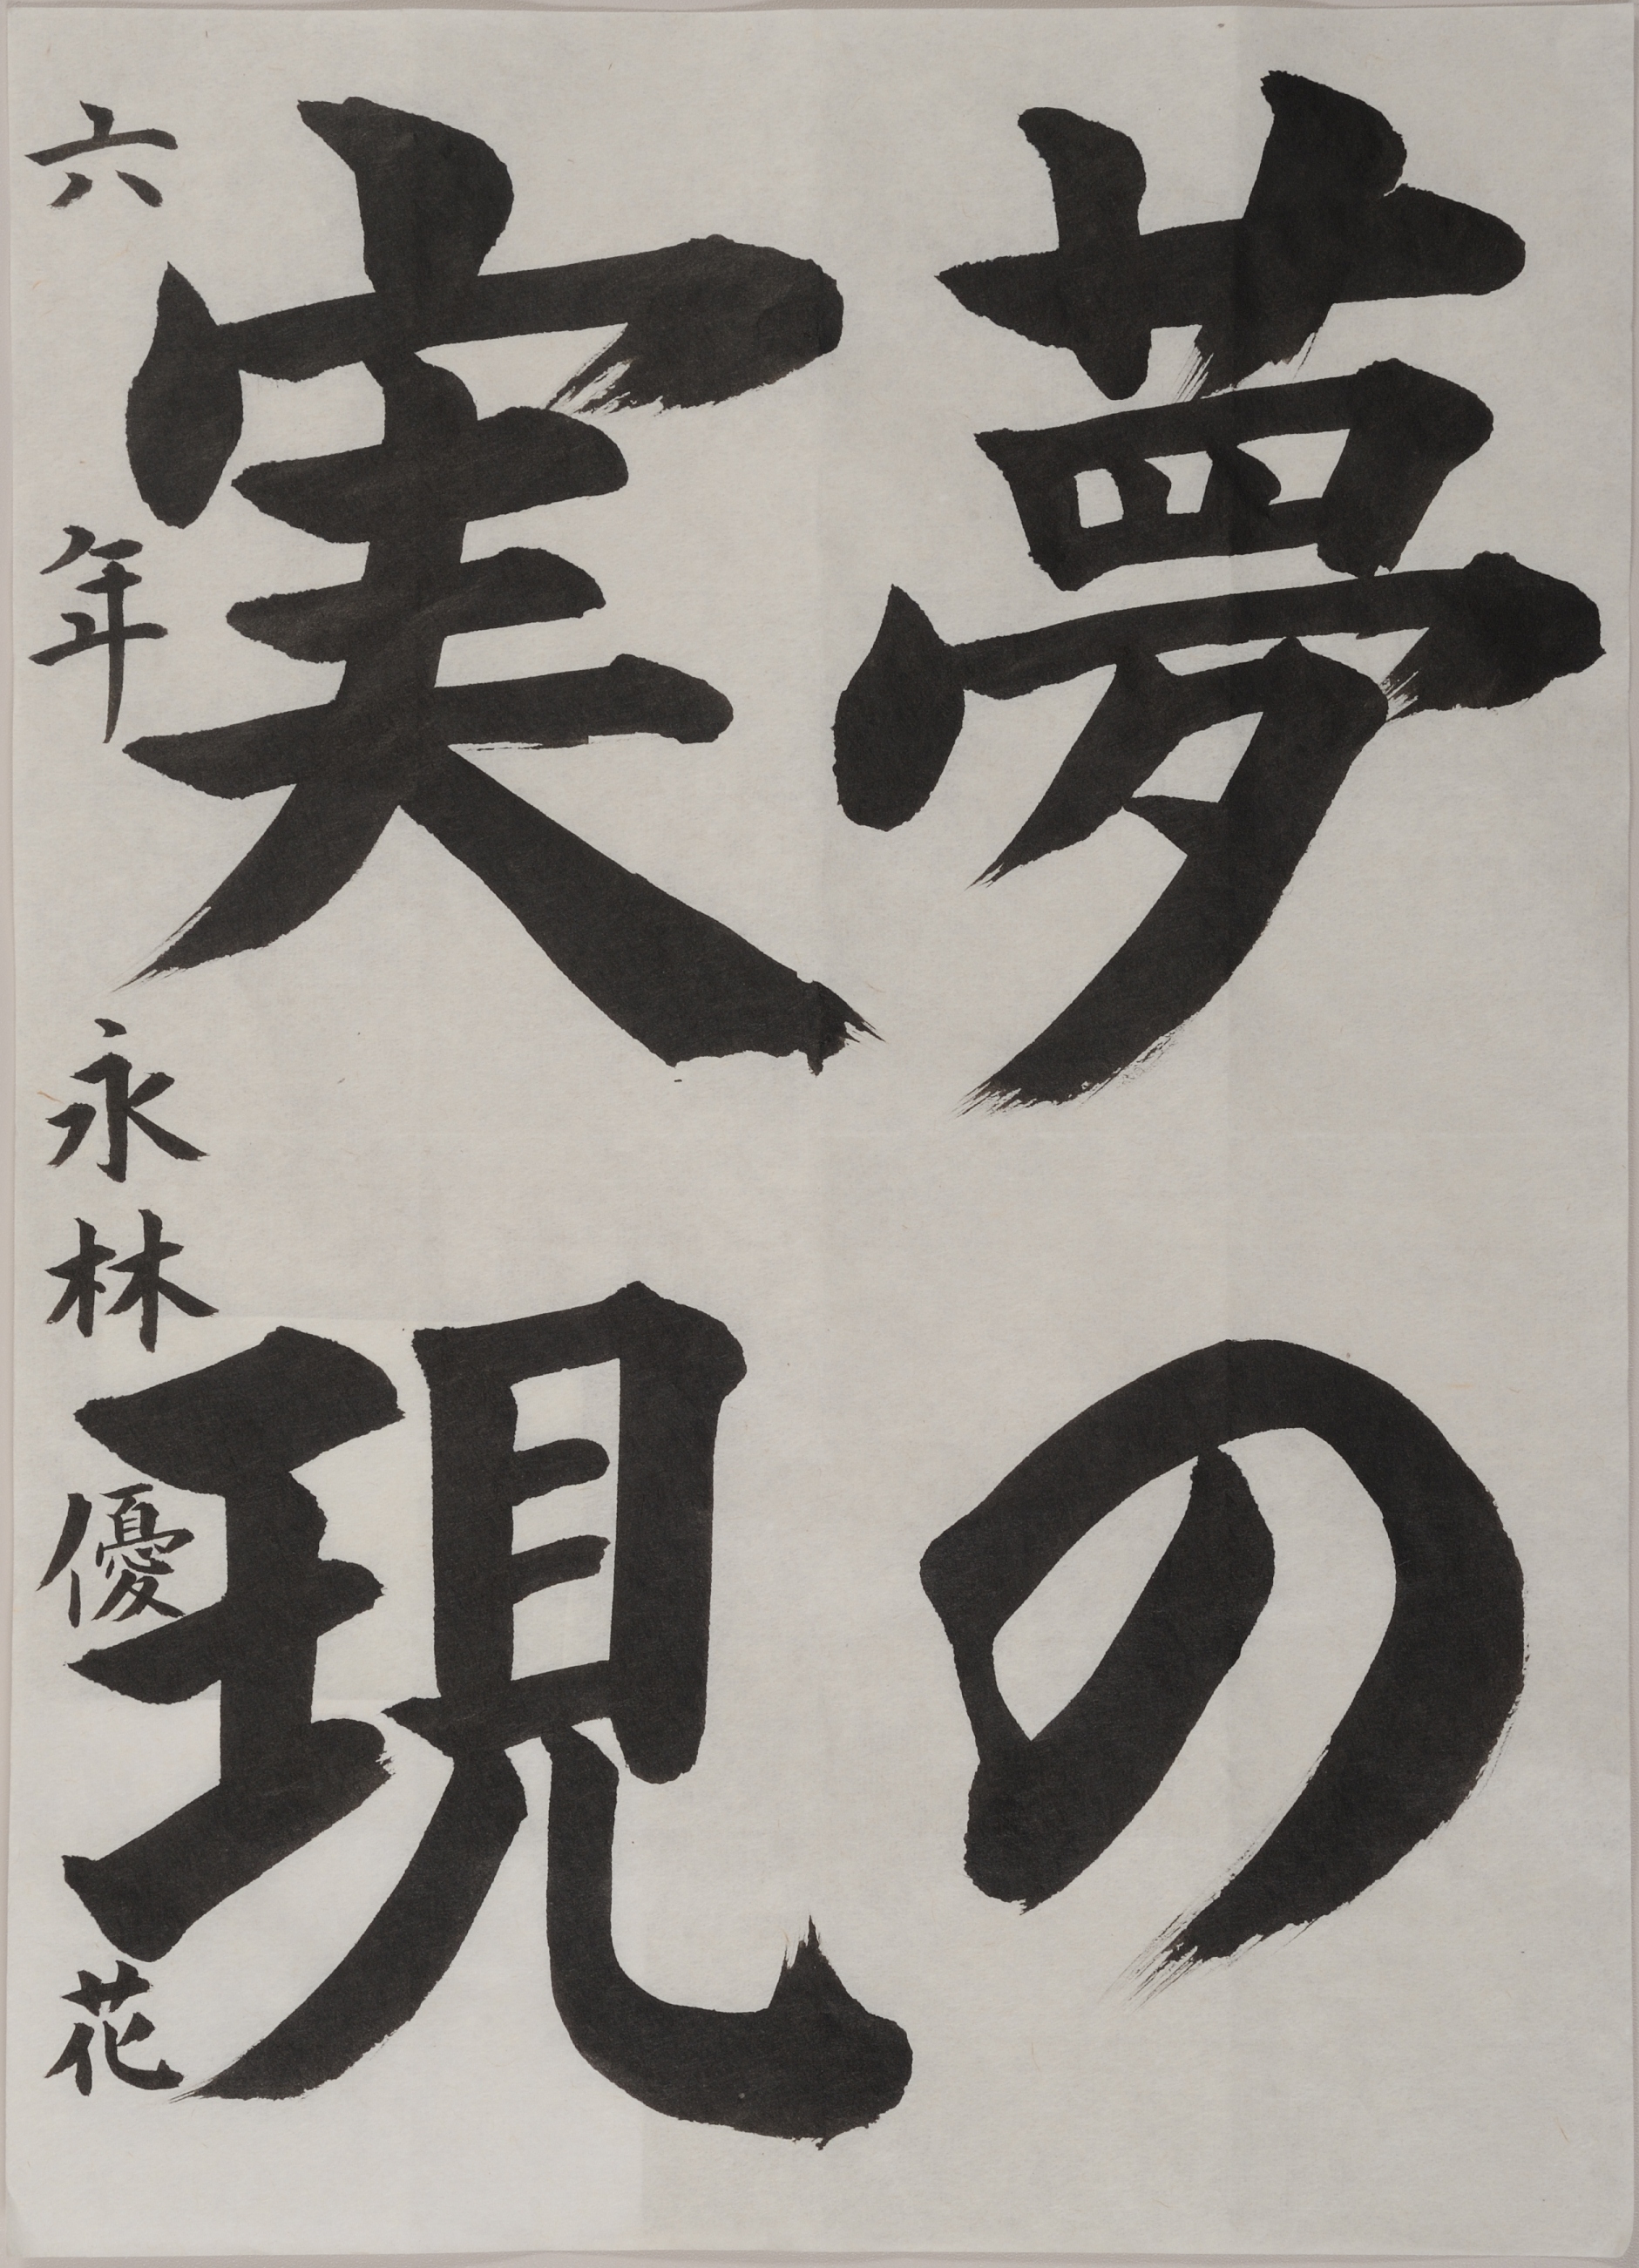 夢の
実現
六年 永林優花